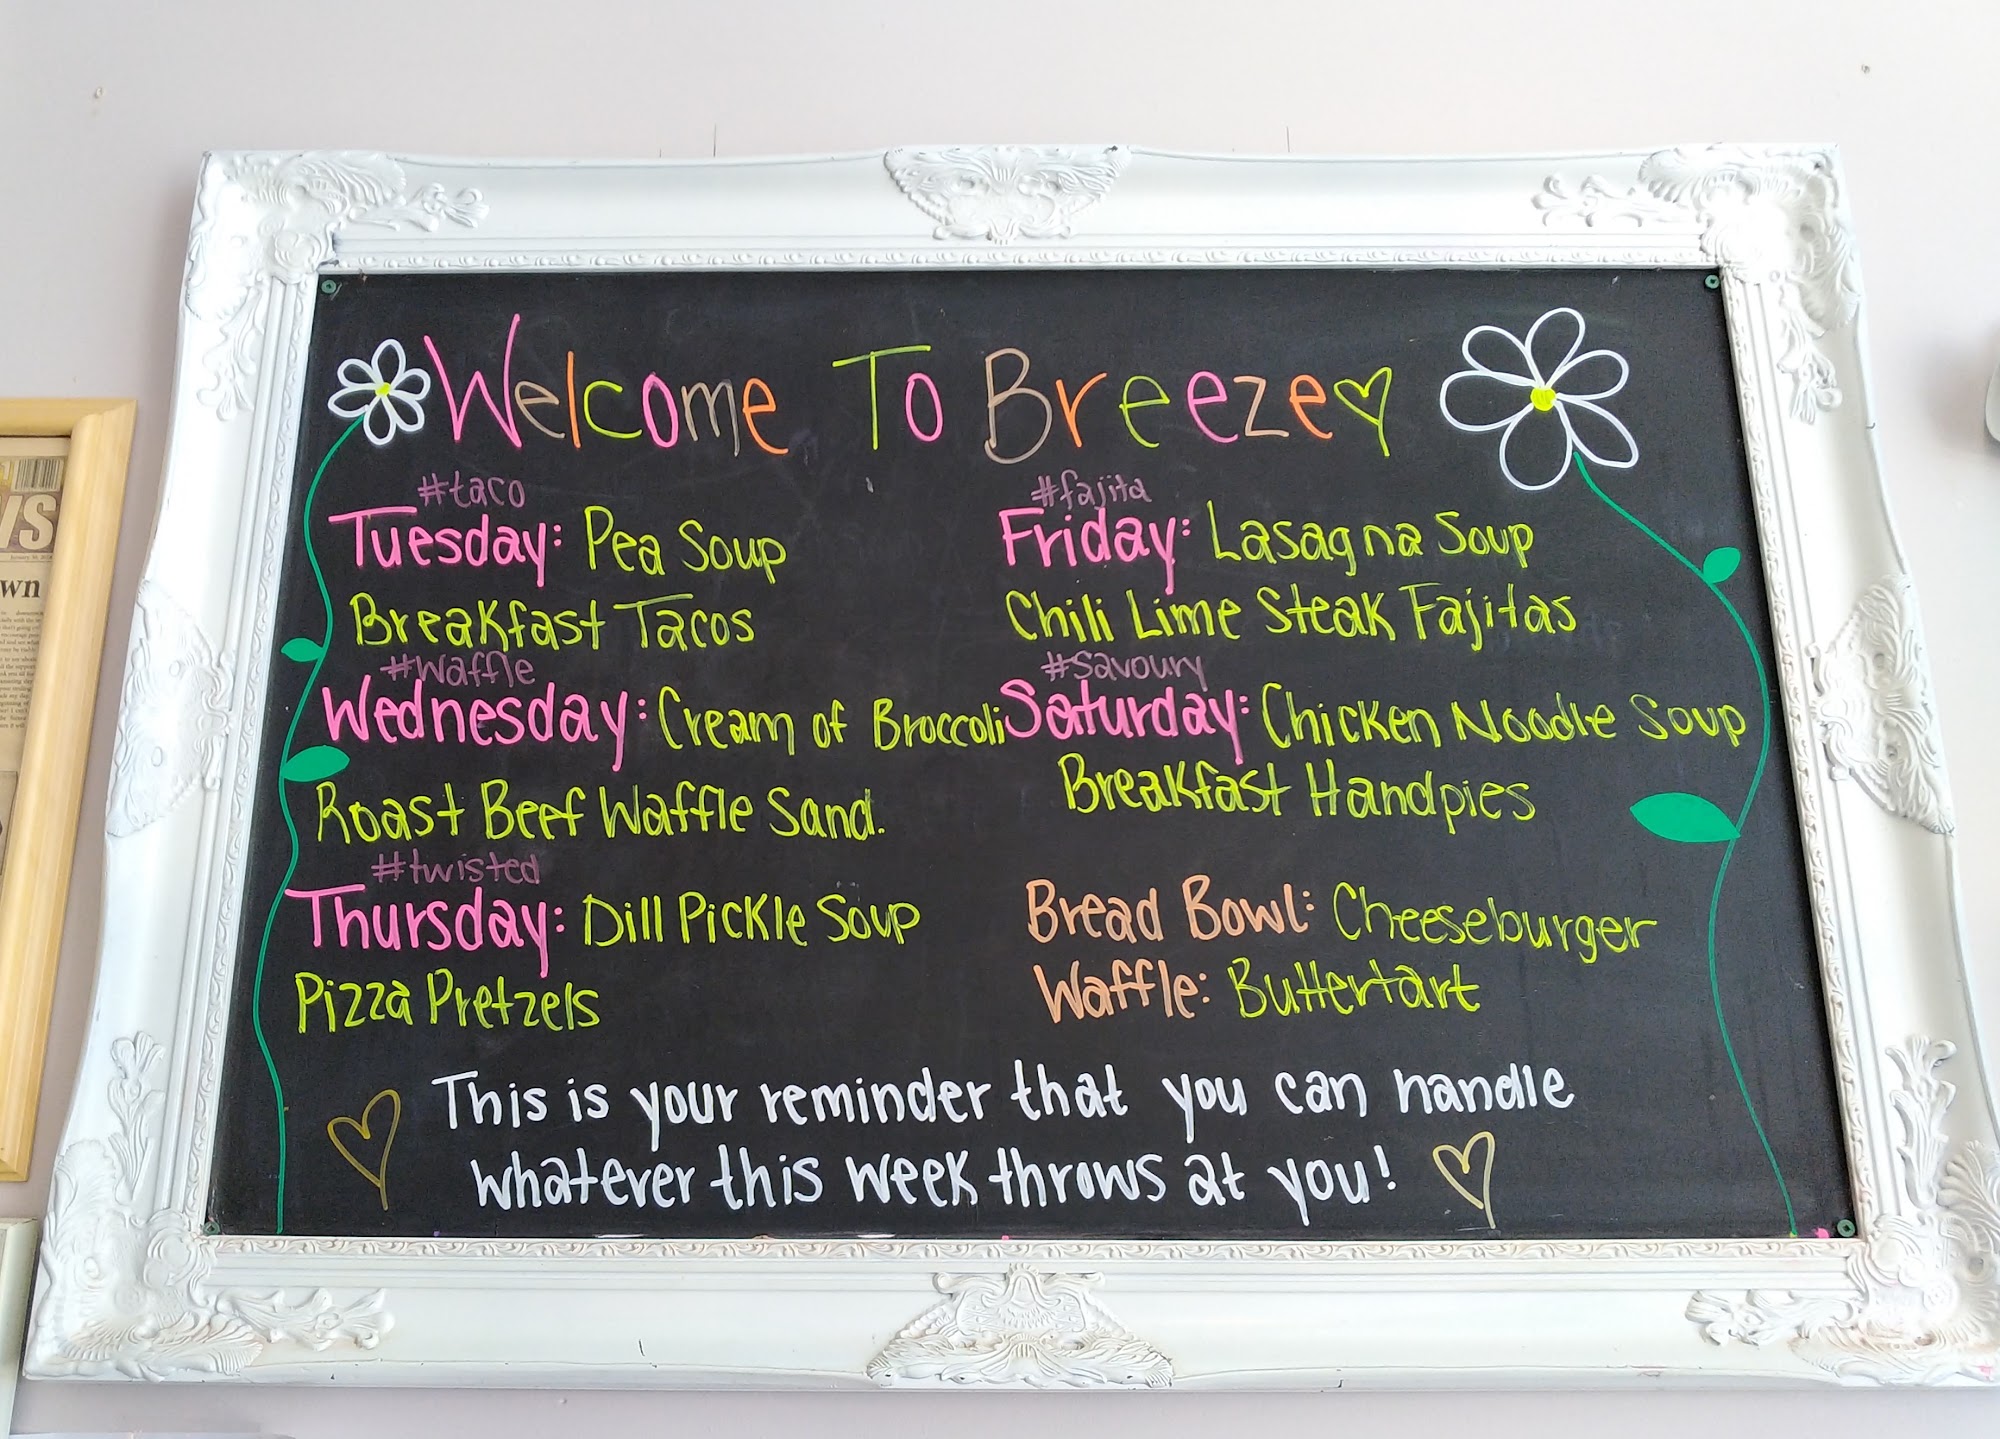 Welcome To Breeze
#taco
Tuesday: Pea Soup
Breakfast Tacos
#waffle
Wednesday: Cream of Broccoli
Roast Beef Waffle Sand.
#twisted
Thursday: Dill Pickle Soup
Pizza Pretzels
#fajita
Friday: Lasagna Soup
Chili Lime Steak Fajitas
#Savoury
Saturday: Chicken Noodle Soup
Breakfast Handpies
Bread Bowl: Cheeseburger
Waffle: Buttertart
This is your reminder that you can handle
whatever this week throws at you!
wn